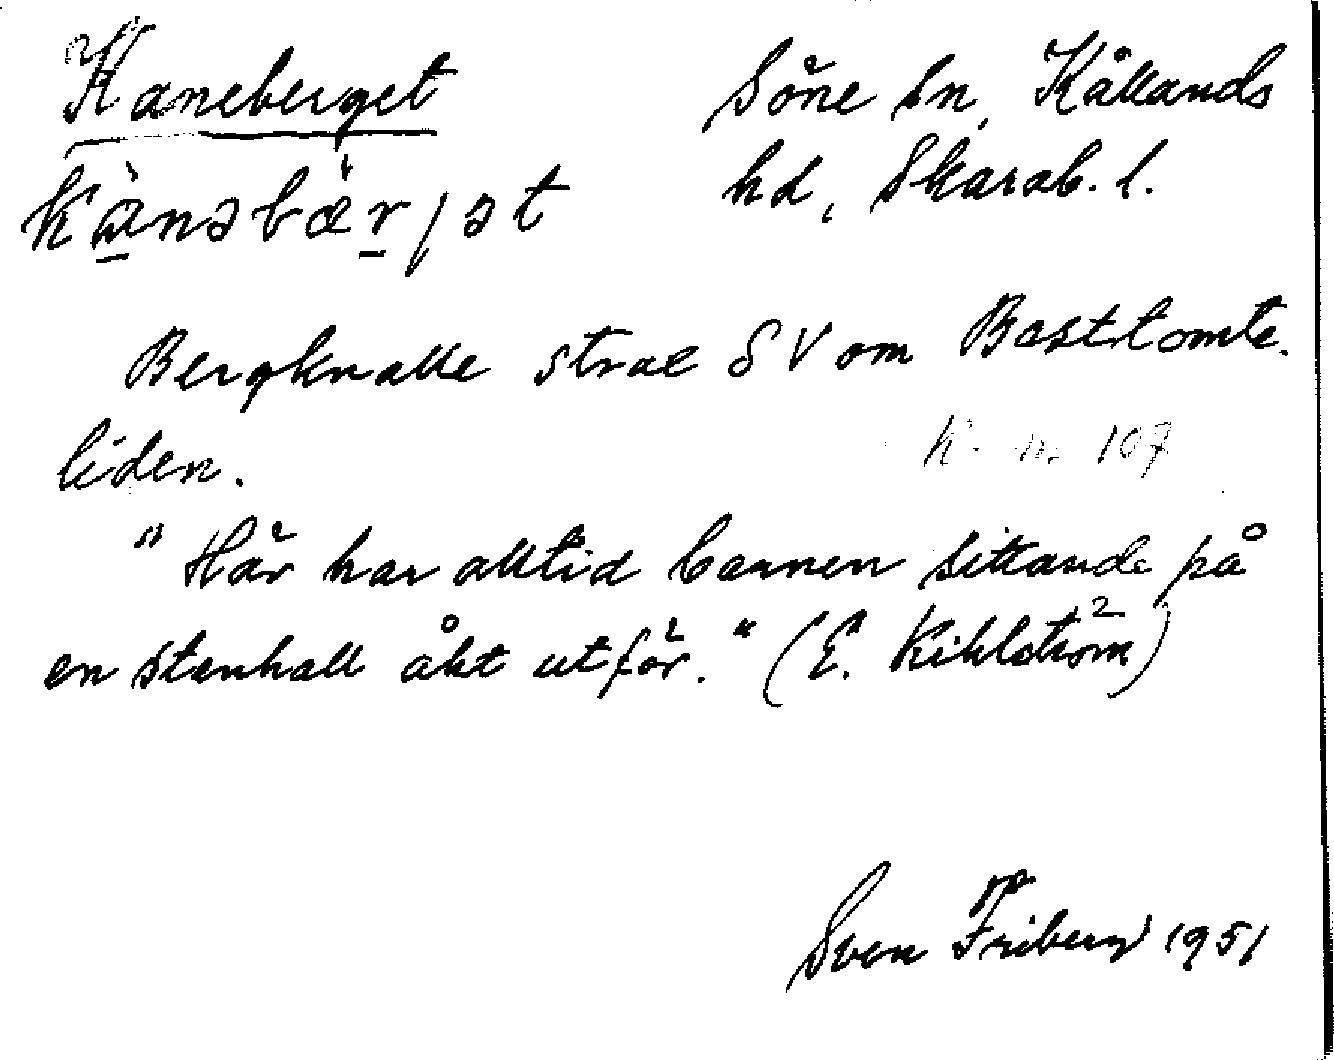 Kaneberget
Söne sn, Kållands
hd, Skarab. l.
kànəbæ̀r/ət
Bergknalle strax SV om Basttomte-
liden.
K. n. 107
"Här har alltid barnen sittande på
en stenhall åkt utför." (E. Kihlström)
Sven Friberg 1951